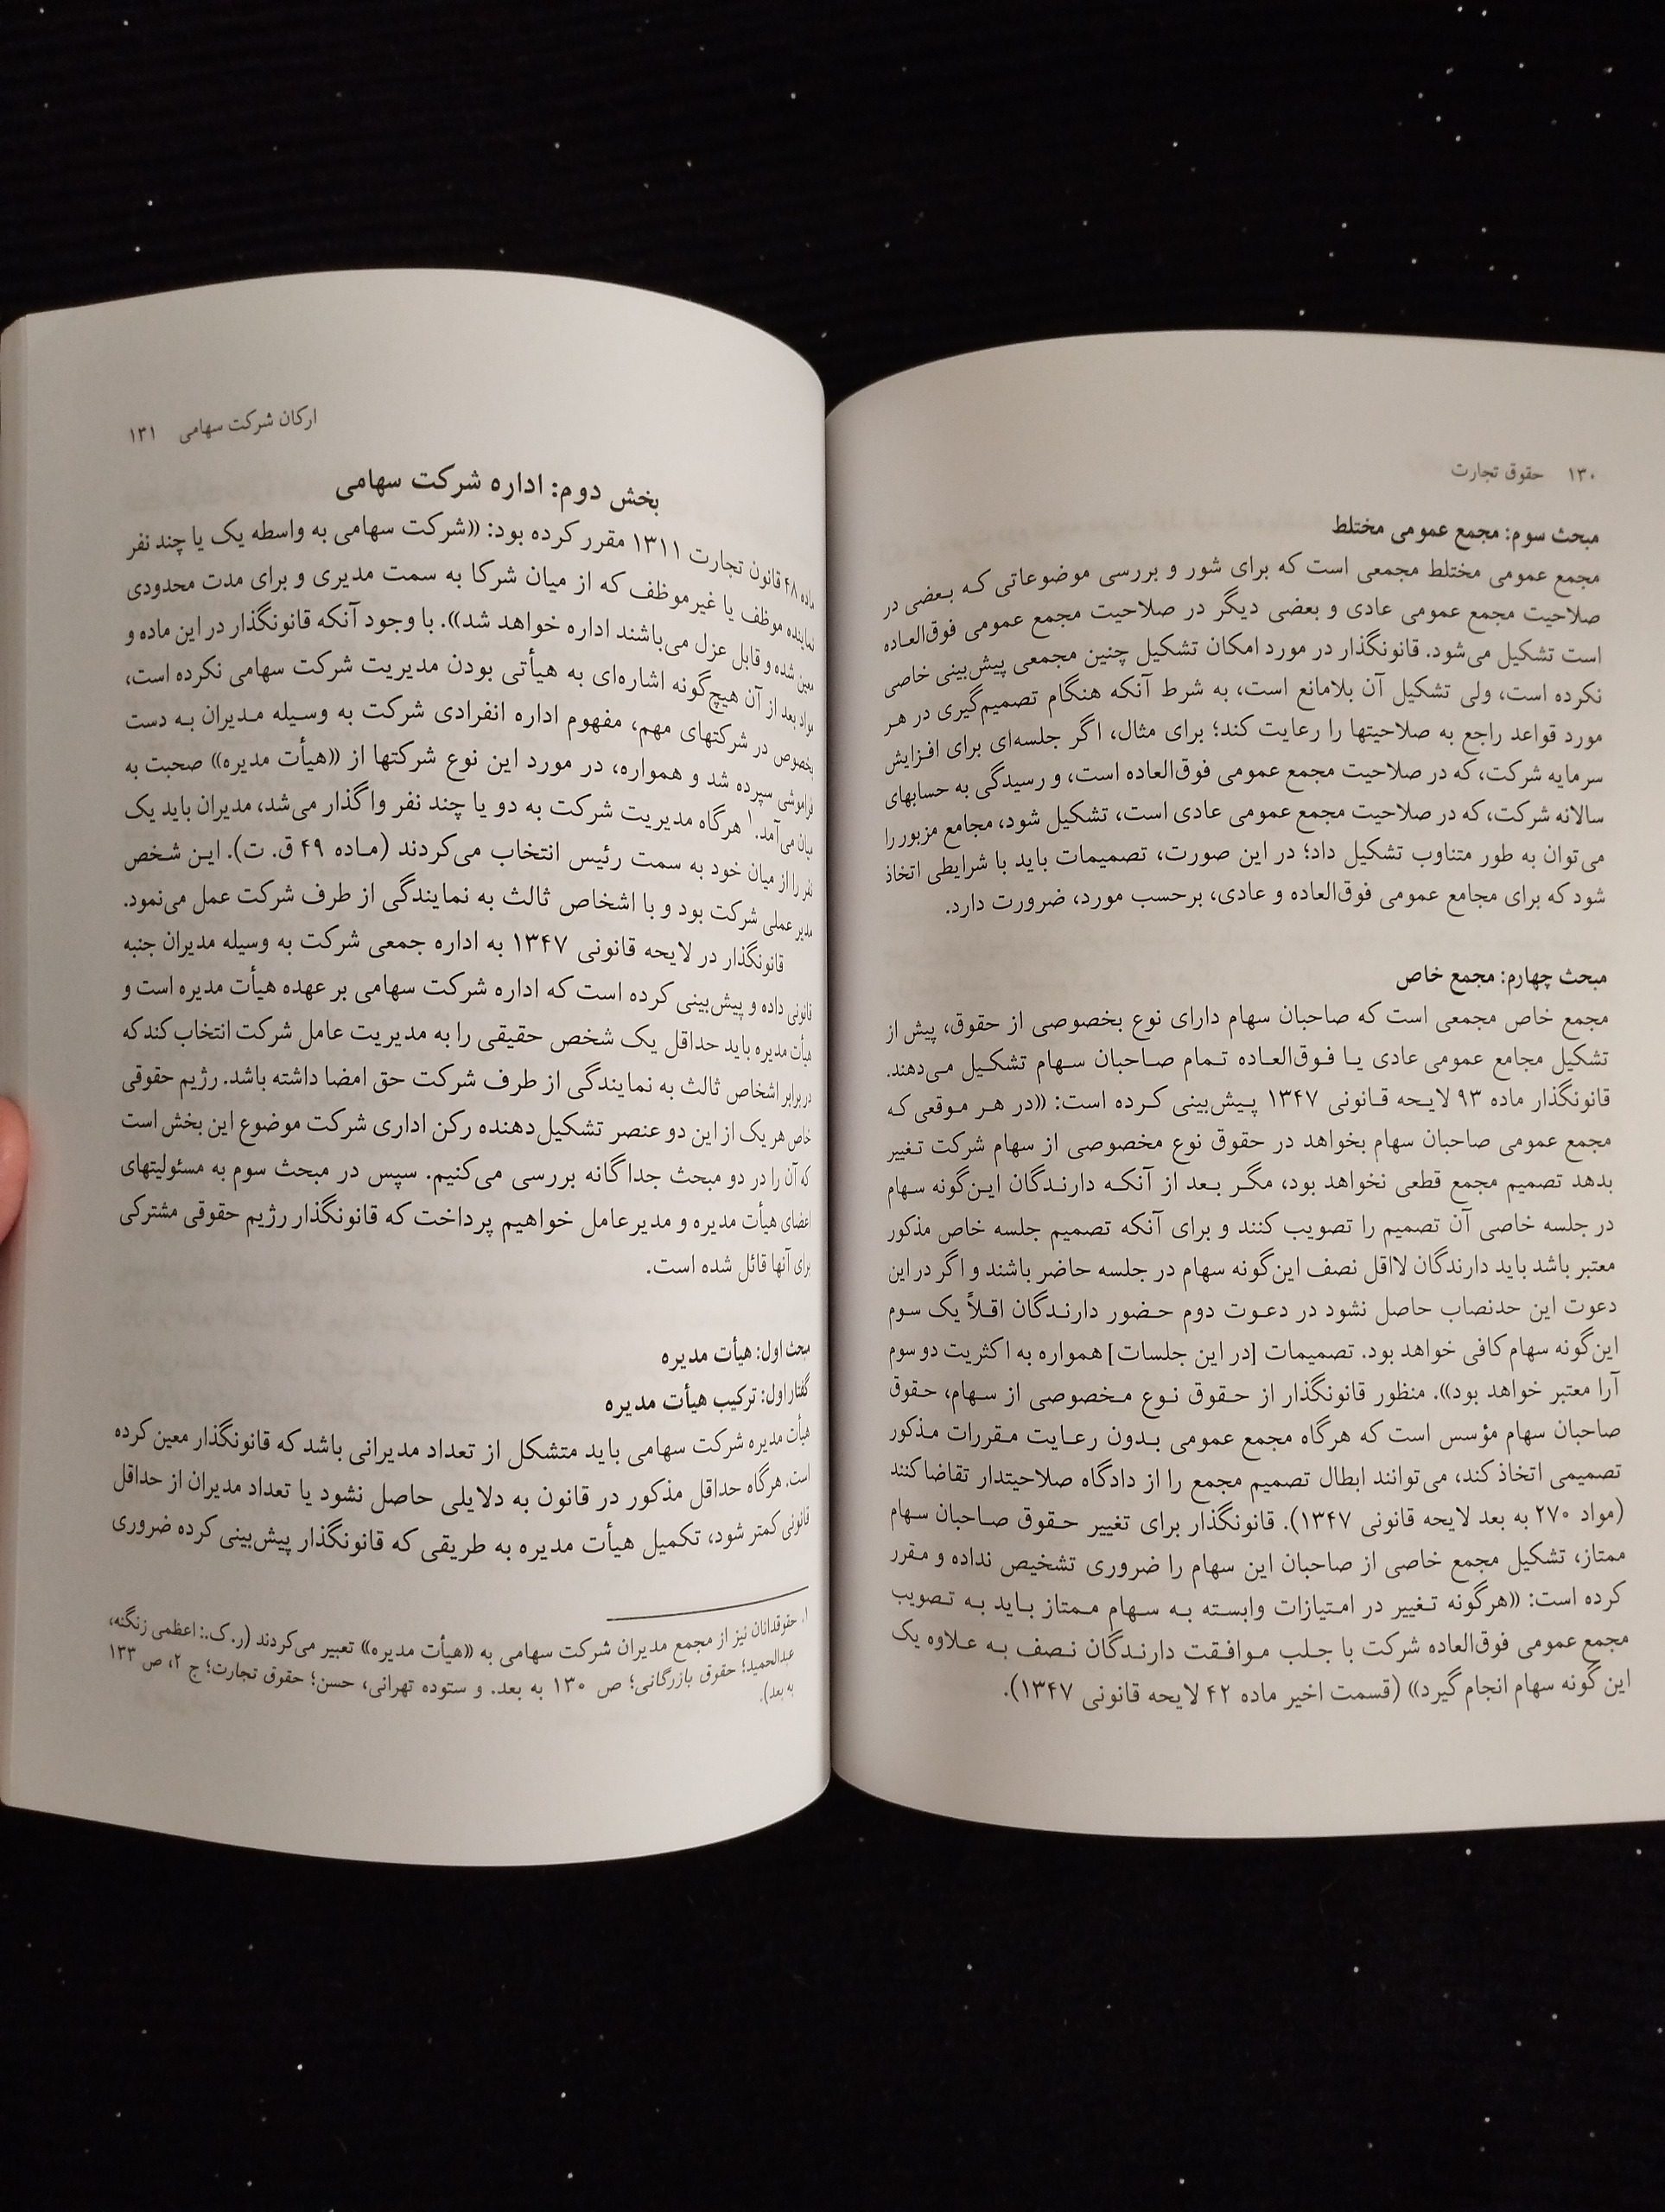 ۱۳۰ حقوق تجارت
مبحث سوم: مجمع عمومی مختلط
مجمع عمومی مختلط مجمعی است که برای شور و بررسی موضوعاتی که بعضی در
صلاحیت مجمع عمومی عادی و بعضی دیگر در صلاحیت مجمع عمومی فوق‌العاده
است تشکیل می‌شود. قانونگذار در مورد امکان تشکیل چنین مجمعی پیش‌بینی خاصی
نکرده است، ولی تشکیل آن بلامانع است، به شرط آنکه هنگام تصمیم‌گیری در هر
مورد قواعد راجع به صلاحیتها را رعایت کند؛ برای مثال، اگر جلسه‌ای برای افزایش
سرمایه شرکت، که در صلاحیت مجمع عمومی فوق‌العاده است، و رسیدگی به حسابهای
سالانه شرکت، که در صلاحیت مجمع عمومی عادی است، تشکیل شود، مجامع مزبور را
می‌توان به طور متناوب تشکیل داد؛ در این صورت، تصمیمات باید با شرایطی اتخاذ
شود که برای مجامع عمومی فوق‌العاده و عادی، برحسب مورد، ضرورت دارد.
مبحث چهارم: مجمع خاص
مجمع خاص مجمعی است که صاحبان سهام دارای نوع بخصوصی از حقوق، پیش از
تشکیل مجامع عمومی عادی یا فوق‌العاده تمام صاحبان سهام تشکیل می‌دهند.
قانونگذار ماده ۹۳ لایحه قانونی ۱۳۴۷ پیش‌بینی کرده است: «در هر موقعی که
مجمع عمومی صاحبان سهام بخواهد در حقوق نوع مخصوصی از سهام شرکت تغییر
بدهد تصمیم مجمع قطعی نخواهد بود، مگر بعد از آنکه دارندگان این‌گونه سهام
در جلسه خاصی آن تصمیم را تصویب کنند و برای آنکه تصمیم جلسه خاص مذکور
معتبر باشد باید دارندگان لااقل نصف این‌گونه سهام در جلسه حاضر باشند و اگر در این
دعوت این حدنصاب حاصل نشود در دعوت دوم حضور دارندگان اقلاً یک سوم
این‌گونه سهام کافی خواهد بود. تصمیمات [در این جلسات] همواره به اکثریت دو سوم
آرا معتبر خواهد بود». منظور قانونگذار از حقوق نوع مخصوصی از سهام، حقوق
صاحبان سهام مؤسس است که هرگاه مجمع عمومی بدون رعایت مقررات مذکور
تصمیمی اتخاذ کند، می‌توانند ابطال تصمیم مجمع را از دادگاه صلاحیتدار تقاضا کنند
(مواد ۲۷۰ به بعد لایحه قانونی ۱۳۴۷). قانونگذار برای تغییر حقوق صاحبان سهام
ممتاز، تشکیل مجمع خاصی از صاحبان این سهام را ضروری تشخیص نداده و مقرر
کرده است: «هرگونه تغییر در امتیازات وابسته به سهام ممتاز باید به تصویب
مجمع عمومی فوق‌العاده شرکت با جلب موافقت دارندگان نصف به علاوه یک
این گونه سهام انجام گیرد» (قسمت اخیر ماده ۴۲ لایحه قانونی ۱۳۴۷).
ارکان شرکت سهامی ۱۳۱
بخش دوم: اداره شرکت سهامی
ماده ۴۸ قانون تجارت ۱۳۱۱ مقرر کرده بود: «شرکت سهامی به واسطه یک یا چند نفر
نماینده موظف یا غیرموظف که از میان شرکا به سمت مدیری و برای مدت محدودی
معین شده و قابل عزل می‌باشند اداره خواهد شد». با وجود آنکه قانونگذار در این ماده و
مواد بعد از آن هیچ‌گونه اشاره‌ای به هیأتی بودن مدیریت شرکت سهامی نکرده است،
بخصوص در شرکتهای مهم، مفهوم اداره انفرادی شرکت به وسیله مدیران به دست
فراموشی سپرده شد و همواره، در مورد این نوع شرکتها از «هیأت مدیره» صحبت به
میان می‌آمد.۱ هرگاه مدیریت شرکت به دو یا چند نفر واگذار می‌شد، مدیران باید یک
نفر را از میان خود به سمت رئیس انتخاب می‌کردند (ماده ۴۹ ق. ت). این شخص
مدیر عملی شرکت بود و با اشخاص ثالث به نمایندگی از طرف شرکت عمل می‌نمود.
قانونگذار در لایحه قانونی ۱۳۴۷ به اداره جمعی شرکت به وسیله مدیران جنبه
قانونی داده و پیش‌بینی کرده است که اداره شرکت سهامی بر عهده هیأت مدیره است و
هیأت مدیره باید حداقل یک شخص حقیقی را به مدیریت عامل شرکت انتخاب کند که
در برابر اشخاص ثالث به نمایندگی از طرف شرکت حق امضا داشته باشد. رژیم حقوقی
خاص هر یک از این دو عنصر تشکیل‌دهنده رکن اداری شرکت موضوع این بخش است
که آن را در دو مبحث جداگانه بررسی می‌کنیم. سپس در مبحث سوم به مسئولیتهای
اعضای هیأت مدیره و مدیر عامل خواهیم پرداخت که قانونگذار رژیم حقوقی مشترکی
برای آنها قائل شده است.
مبحث اول: هیأت مدیره
گفتار اول: ترکیب هیأت مدیره
هیأت مدیره شرکت سهامی باید متشکل از تعداد مدیرانی باشد که قانونگذار معین کرده
است. هرگاه حداقل مذکور در قانون به دلایلی حاصل نشود یا تعداد مدیران از حداقل
قانونی کمتر شود، تکمیل هیأت مدیره به طریقی که قانونگذار پیش‌بینی کرده ضروری
۱. حقوقدانان نیز از مجمع مدیران شرکت سهامی به «هیأت مدیره» تعبیر می‌کردند (ر. ک.: اعظمی زنگنه،
عبدالحمید؛ حقوق بازرگانی؛ ص ۱۳۰ به بعد. و ستوده تهرانی، حسن؛ حقوق تجارت؛ ج ۲، ص ۱۳۳
به بعد).